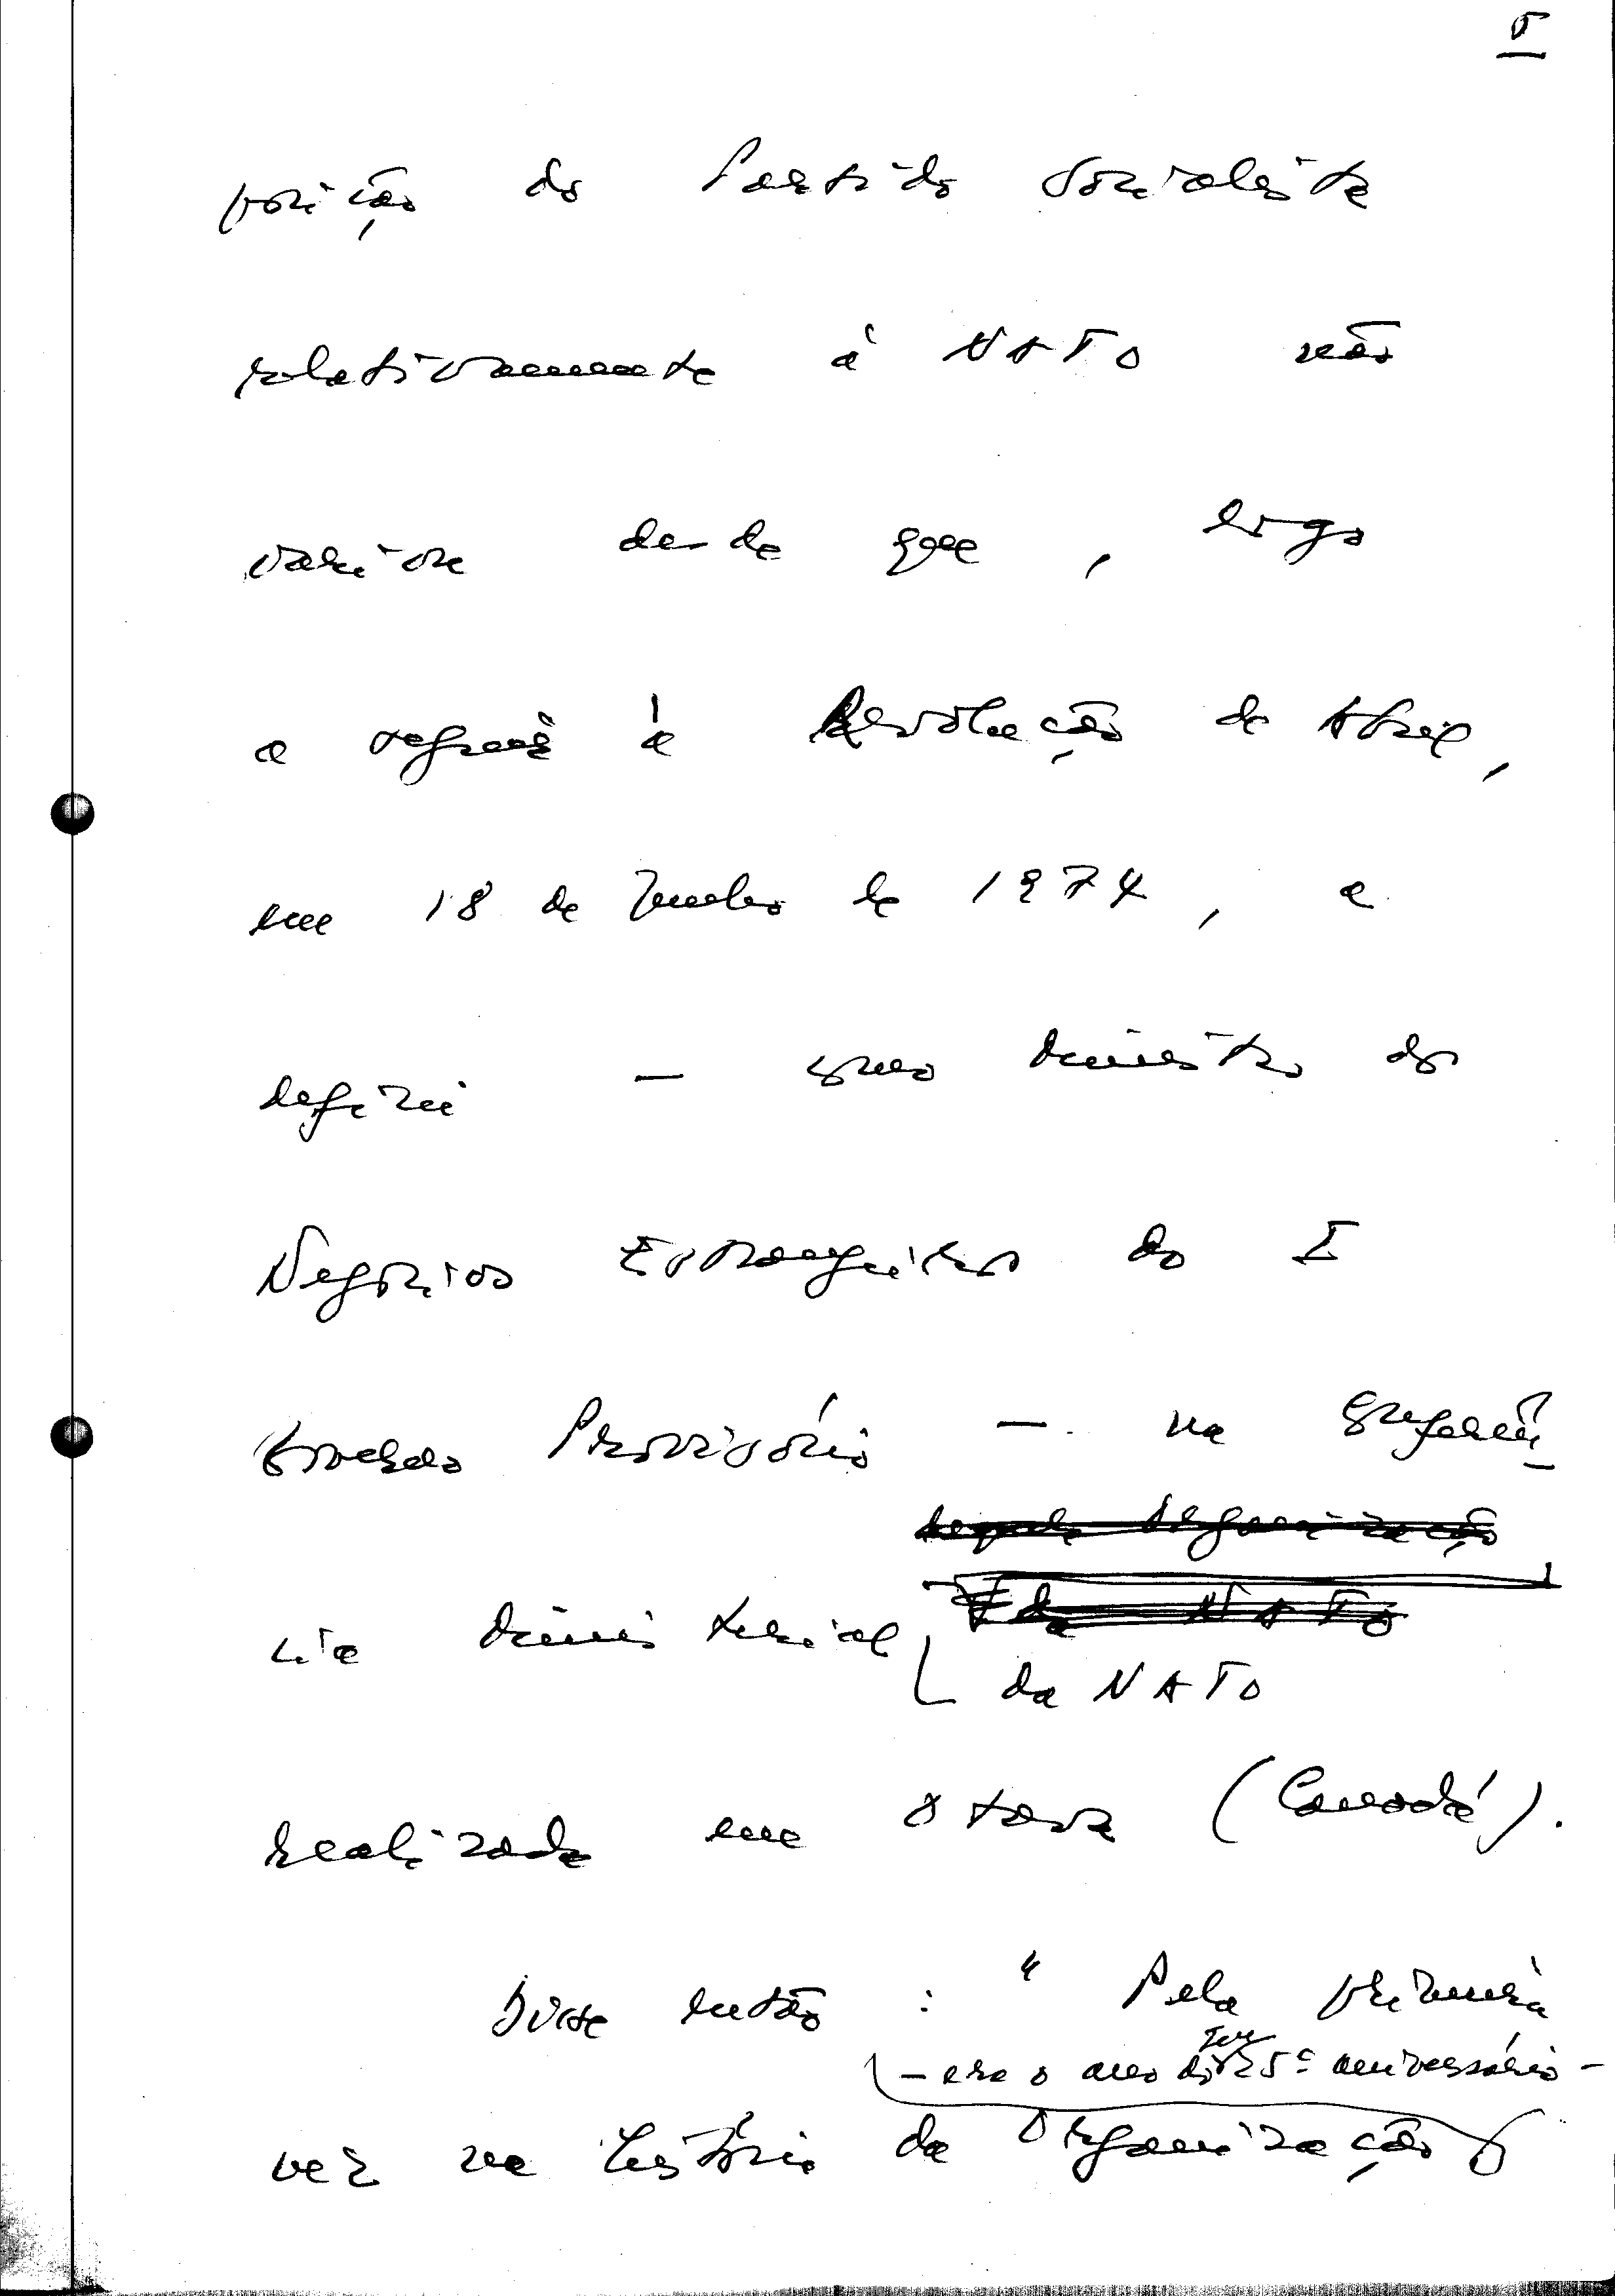 5
posição do Partido Socialista
relativamente à NATO não
variou desde que, logo
a seguir à Revolução de Abril,
em 18 de Junho de 1974, a
defini — como ministro dos
Negócios Estrangeiros do I
Governo Provisório — na Conferên-
daquela Organização
cia ministerial
da NATO
da NATO
realizada em Otava (Canadá).
Disse então : "Pela primeira
— era o ano do seu 25º aniversário —
vez na história da Organização